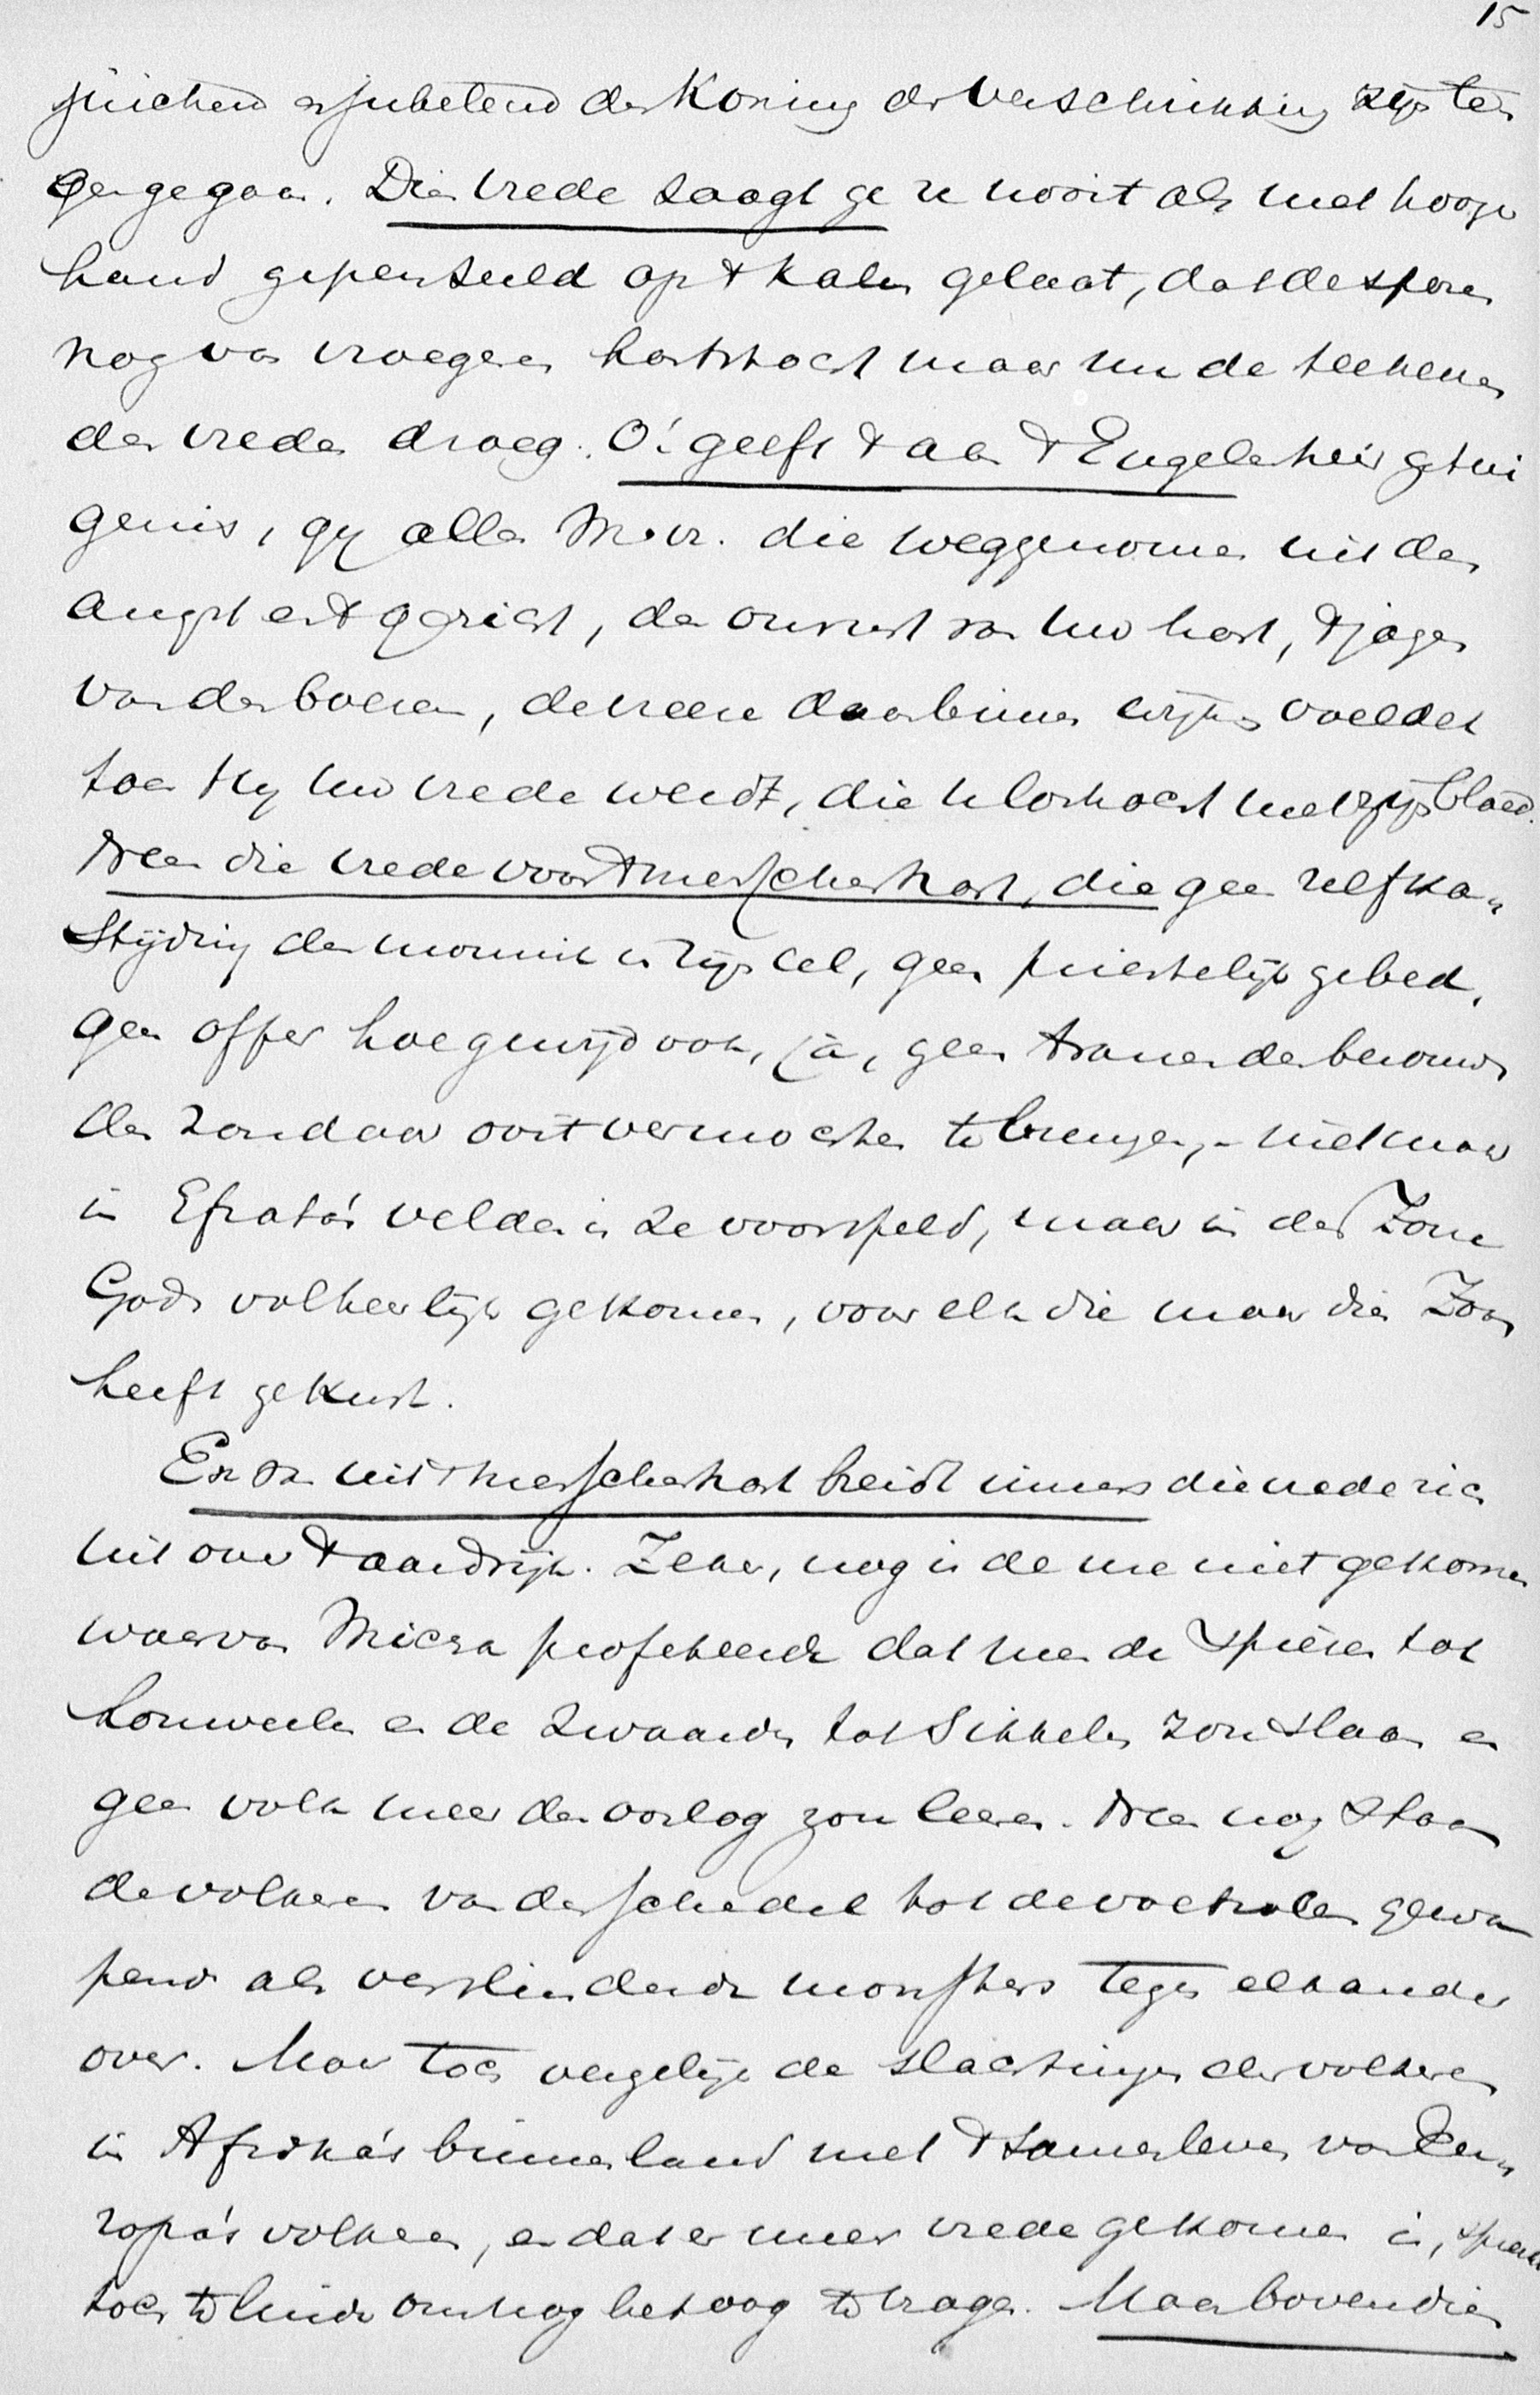 15
juichend en jubelend den Koning der verschrikking zijn tegen
gengegaan. Dien vrede zaagt ge u nooit als met hooger
hand gepenseeld op 't kalm gelaat, dat de sporen
nog van vroegere hartstocht maar nu de teekenen
des vredes droeg. O! geeft 't aan 't Engelenheir getui
genis, gij allen M. vr. die weggenomen uit den
angst en 't gericht, de onrust van uw hart, 't jagen
van den boezem, de vreeze daarbinnen wijken voeldet
toen Hij uw vrede werdt, die u loskocht met zijn bloed.
Neen die vrede voor 't menschenhart, die geen zelfka-
stijding den monnik in zijn cel, geen priesterlijk gebed,
geen offer hoe gewijd ook, ja, geen tranen des berouws
den zondaar ooit vermochten te brengen, - niet maar
in Efrata's velden is ze voorspeld, maar in den Zone
Gods volheerlijk gekomen, voor elk die maar dien Zoon
heeft gekust.
En van uit 't menschenhart breidt immers die vrede zich
uit over 't aardrijk. Zeker, nog is de ure niet gekomen
waarvan Micha profeteerde dat men de spiesen tot
houweelen en de zwaarden tot Sikkelen zou slaan en
geen volk meer den oorlog zou leeren. Neen nog staan
de volkeren van den schedel tot de voetzolen gewa
pend als verslindende monsters tegen elkander
over. Maar toch vergelijk de slachtingen der volkeren
in Afrika's binnenland met 't samenleven van Eu-
ropa's volkeren, en dat er meer vrede gekomen is, spreekt
toch te luide om nog betoog te vragen. Maar bovendien